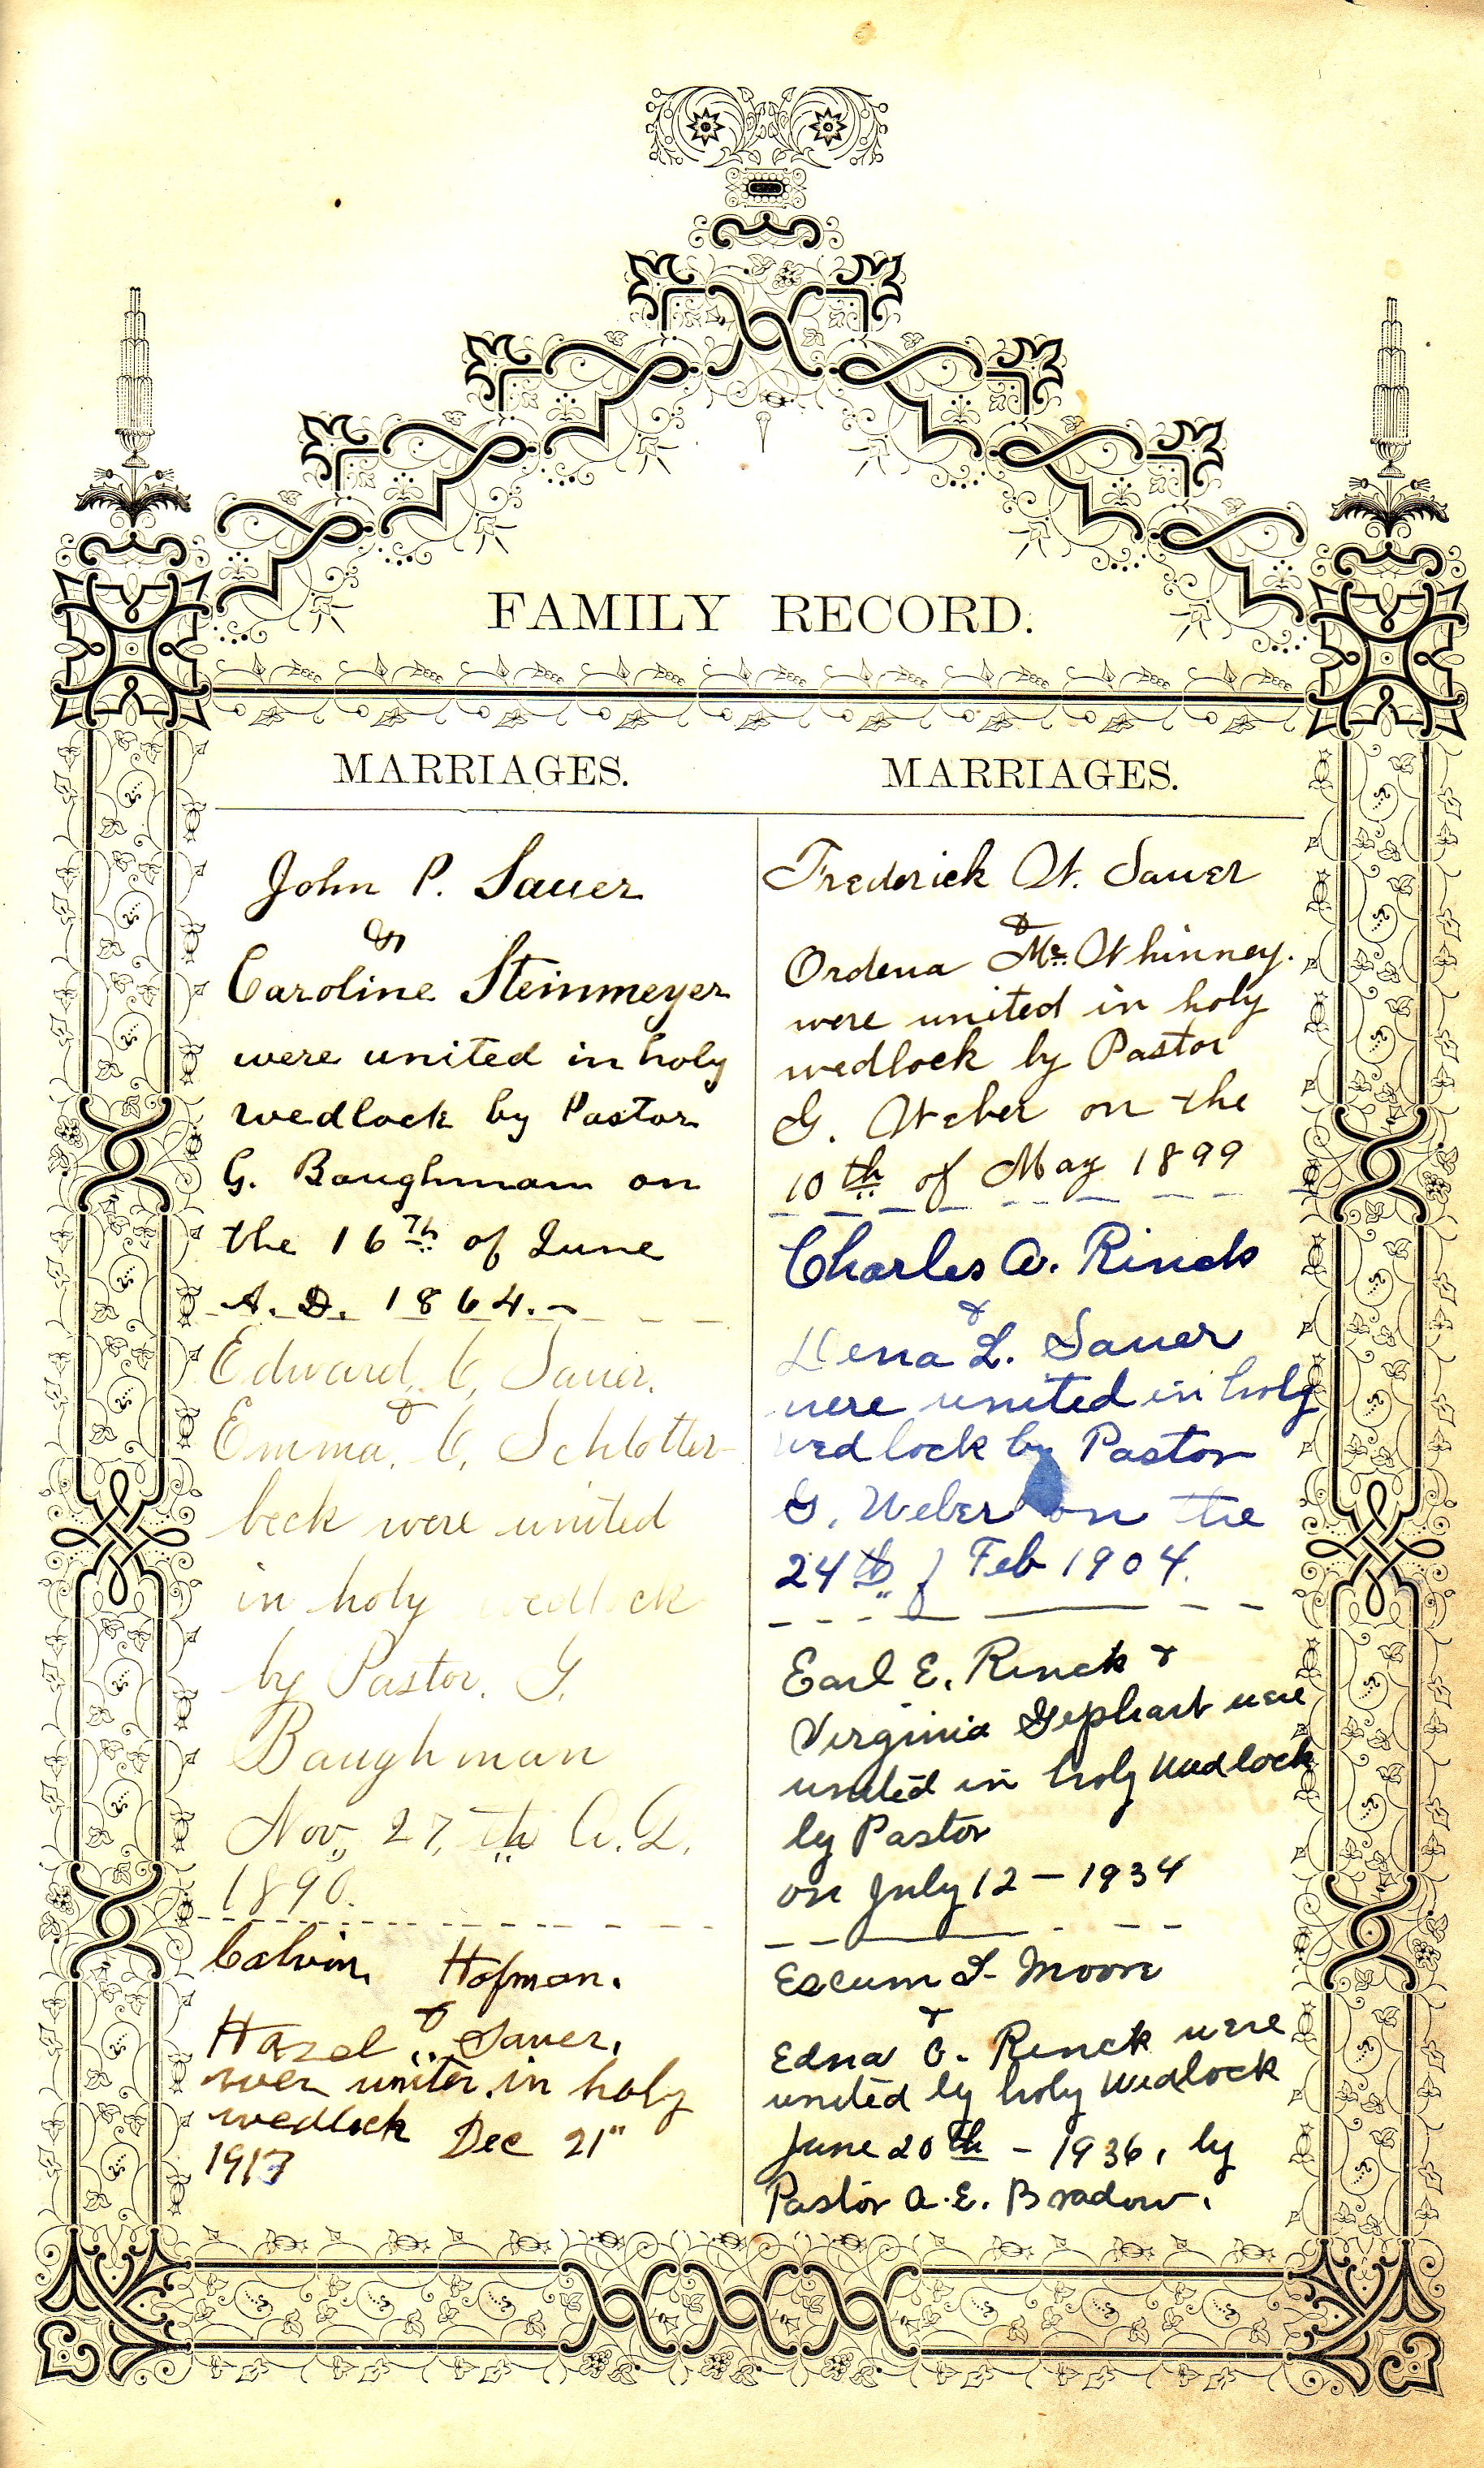 FAMILY RECORD.
MARRIAGES.
John P. Sauer
&
Caroline Steinmeyer
were united in holy
wedlock by Pastor
G. Baughmam on
the 16th of June
A. D. 1864.-
Edward. C. Sauer.
&
Emma. C. Schlotter-
beck were united
in holy wedlock
by Pastor. G.
Baughman
Nov, 27, th A.D.
1890.
Calvin. Hofman.
&
Hazel Sauer.
wer uniter in holy
wedlock Dec 21"
MARRIAGES.
Frederick W. Sauer
&
Ordena McWhinney.
were united in holy
wedlock by Pastor
G. Weber on the
10th of May 1899
Charles A. Rinck
&
Lena L. Sauer
were united in holy
wedlock by Pastor
G. Weber on the
24th of Feb 1904.
Earl E. Rinck &
Virginia Gephart were
united in holy wedlock
by Pastor
on July 12 - 1934
Escum I- Moore
&
Edna O. Rinck were
united by holy wedlock
June 20th - 1936, by
Pastor A. E. Bradow.